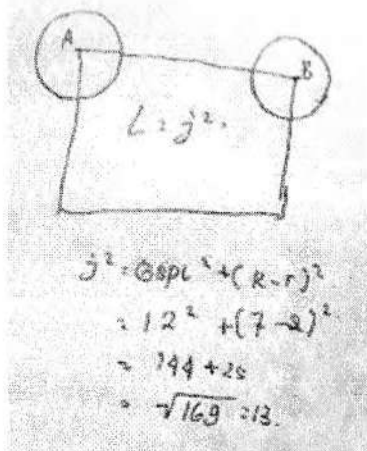 A
B
L = j².
j² = Gspl² + (R-r)²
= 12² + (7-2)²
= 144 + 25
= √169 = 13.